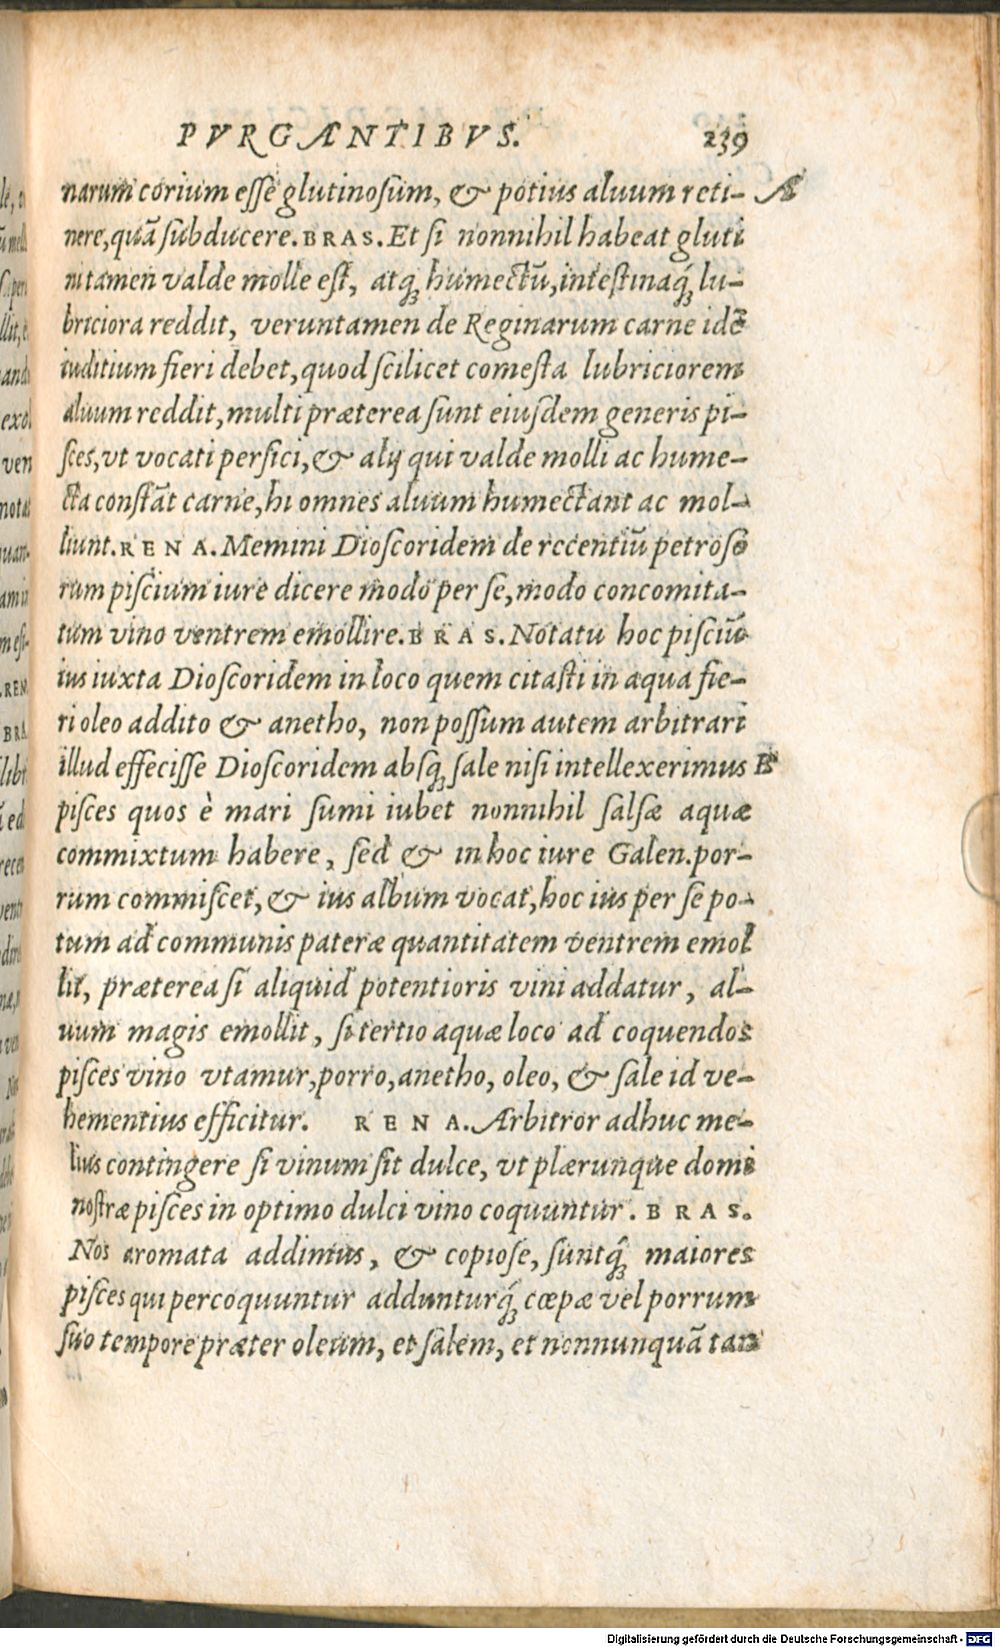 PVRGANTIBVS. 239
narum corium esse glutinosum, & potius aluum reti- A
nere, quā subducere. BRAS. Et si nonnihil habeat gluti
ni tamen valde molle est, atq; humectū, intestinaq́; lu-
briciora reddit, veruntamen de Reginarum carne idē
iuditium fieri debet, quod scilicet comesta lubriciorem
aluum reddit, multi præterea sunt eiusdem generis pi-
sces, vt vocati persici, & alij qui valde molli ac hume-
cta constāt carne, hi omnes aluum humectant ac mol-
liunt. RENA. Memini Dioscoridem de rccentiū petroso
rum piscium iure dicere modo per se, modo concomita-
tum vino ventrem emollire. BRAS. Notatu hoc pisciū
ius iuxta Dioscoridem in loco quem citasti in aqua fie-
ri oleo addito & anetho, non possum autem arbitrari
illud effecisse Dioscoridem absq; sale nisi intellexerimus B
pisces quos è mari sumi iubet nonnihil salsæ aquæ
commixtum habere, sed & in hoc iure Galen. por-
rum commiscet, & ius album vocat, hoc ius per se po-
tum ad communis pateræ quantitatem ventrem emol
lit, præterea si aliquid potentioris vini addatur, al-
uum magis emollit, si tertio aquæ loco ad coquendos
pisces vino vtamur, porro, anetho, oleo, & sale id ve-
hementius efficitur. RENA. Arbitror adhuc me-
lius contingere si vinum sit dulce, vt plærunque domi
nostræ pisces in optimo dulci vino coquuntur. BRAS.
Nos aromata addimus, & copiose, suntq́; maiores
pisces qui percoquuntur addunturq́; cœpæ vel porrum
suo tempore præter oleum, et salem, et nonnunquā tan
Digitalisierung gefördert durch die Deutsche Forschungsgemeinschaft - DFG